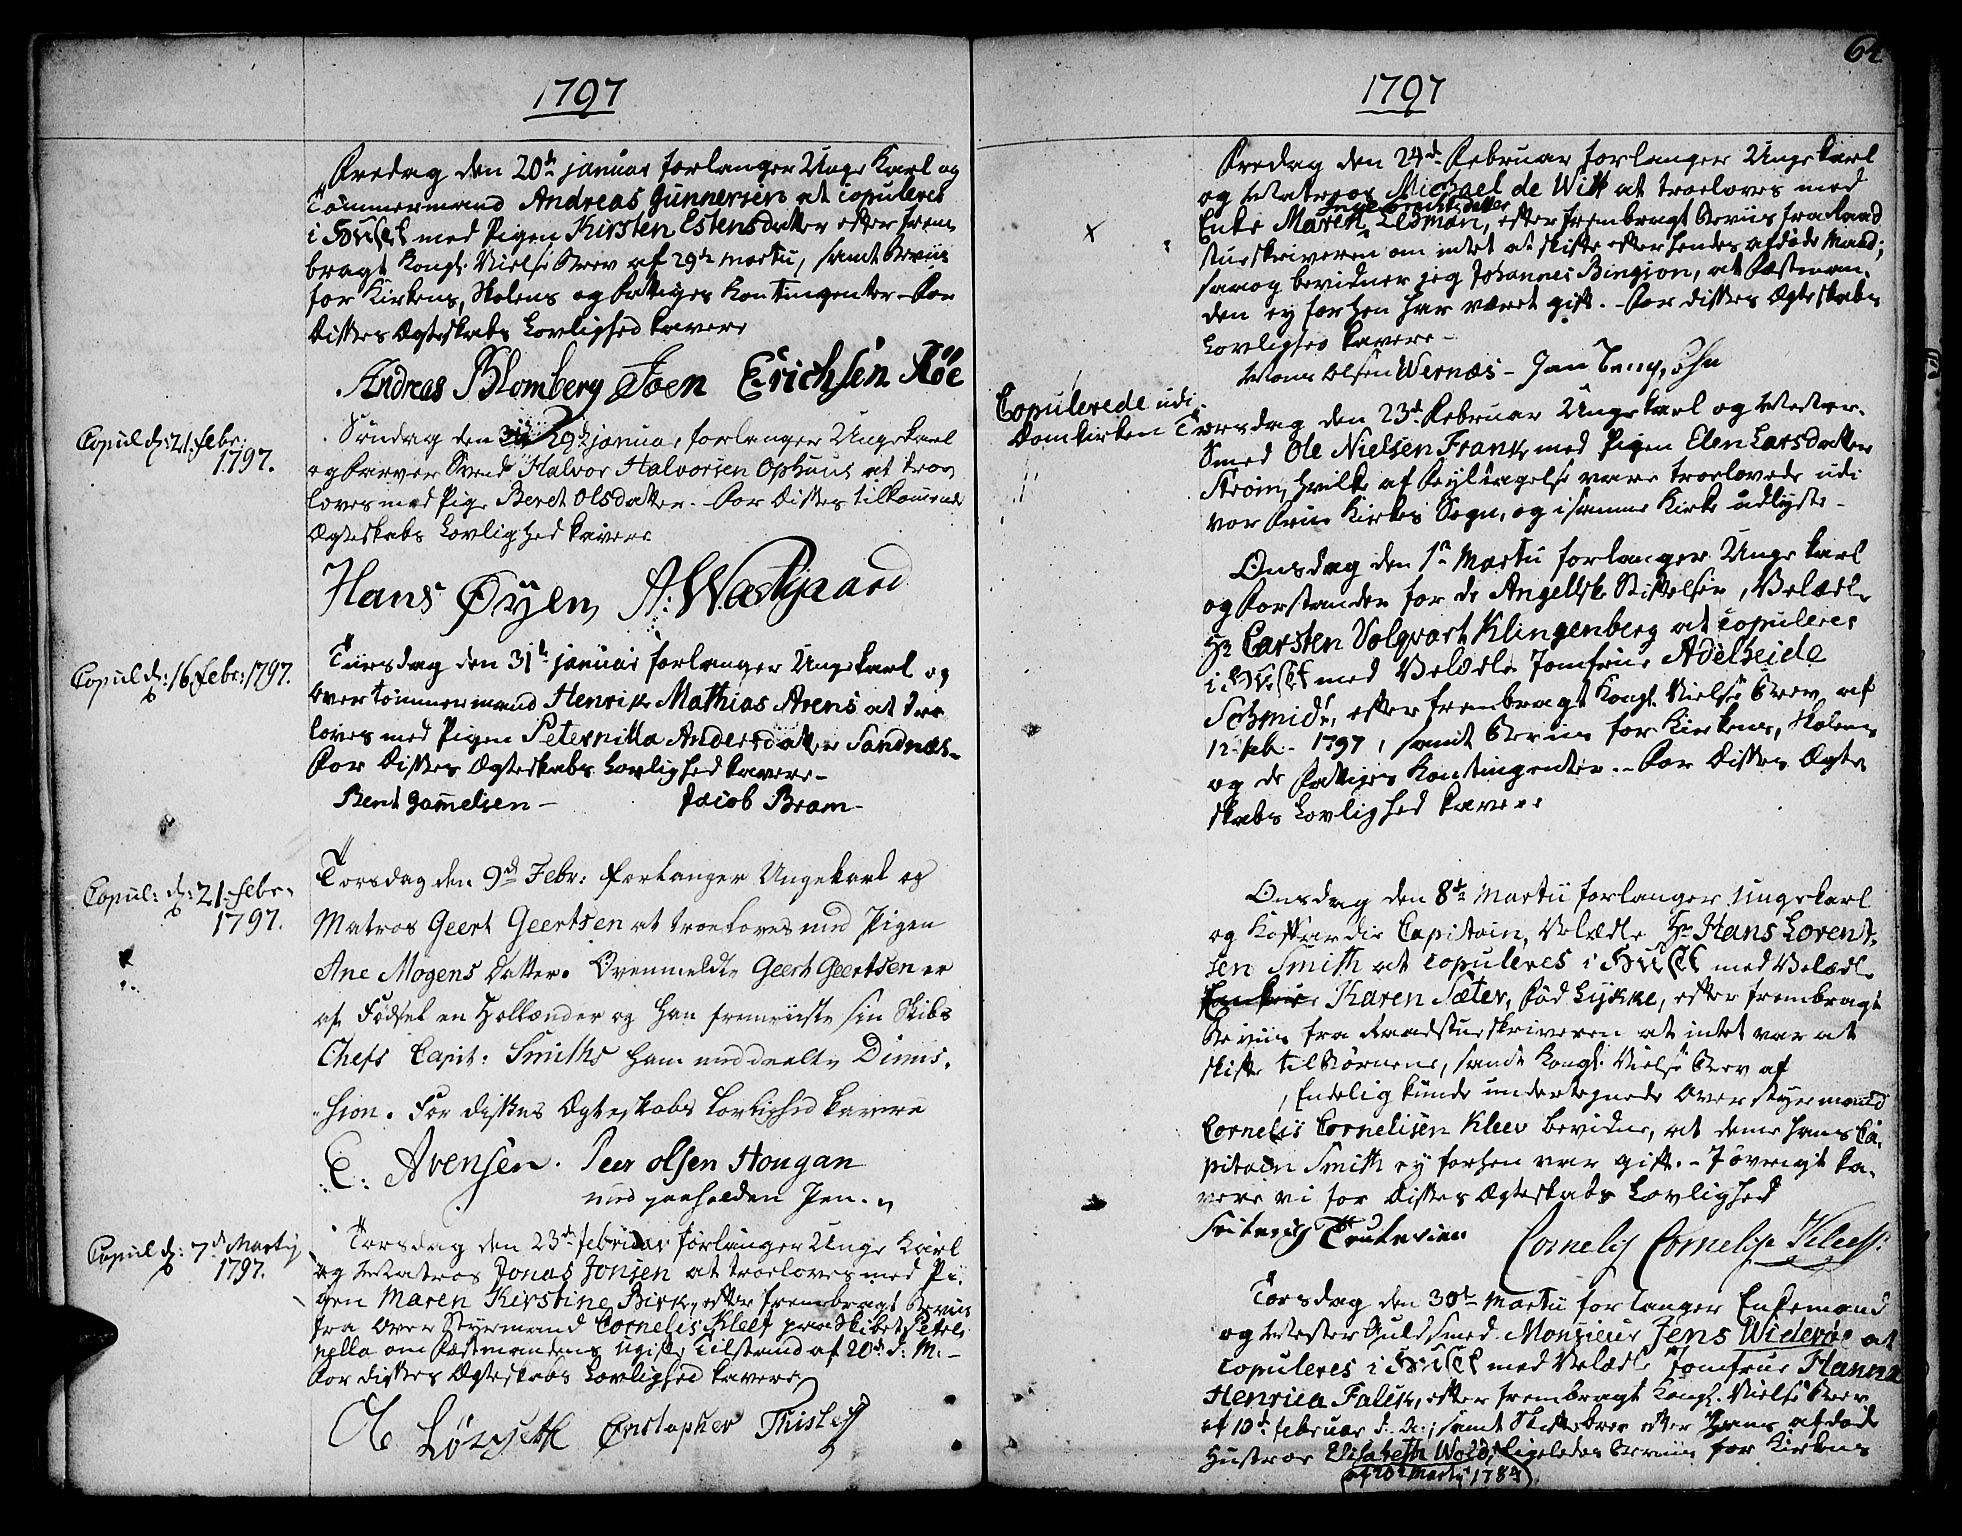 1797
Fredag den 20de januar forlanger Unge Karl og
Tømmermand Andreas Gunnersen at copuleres
i Huset med Pigen Kirsten Estensdatter efter frem
bragt Kongl. Vielse Brev af 29de martii, samt Beviis
for Kirkens, Skolens og Fattiges Contingenter. For
Disses Ægteskabs Lovlighed cavere
Andreas Blomberg Joen Erichsen Röe
Copul d: 21. febr:
1797.
Søndag den 29de januar forlanger Ungekarl
og Farver Svend Halvor Halvorsen Ophuus at troe
loves med Pige Beret Olsdatter. For Disses tilkommende
Ægteskabs Lovlighed cavere
Hans Öyen, A: Wastgaard
Copul d: 16 febr: 1797.
Tiirsdag den 31te januar forlanger Ungekarl og
Overtømmermand Henrik Mathias Arens at troe
loves med Pigen Peternilla Andersdatter Sandnæs.
For Disses Ægteskabs Lovlighed cavere
Bent Gamelsen Jacob Bram
Copul: d: 21 febr.
1797.
Torsdag den 9de Febr: forlanger Ungekarl og
Matros Geert Geertsen at troeloves med Pigen
Ane Mogens Datter. Ovenmeldte Geert Geertsen er
af Fødsel en Hollænder og han fremviiste sin Skibs
Chefs Capit: Smiths ham meddeelte Dimis-
sion. For disses Ægteskabs Lovlighed cavere
C: Arensen. Peer olsen Hougan
med paaholden Pen.
Copul d: 7de Martij
1797.
Torsdag den 23de februar forlanger Unge Karl
og Matros Jonas Jonsen at troeloves med Pi-
gen Maren Kirstine Birk, efter frembragt Beviis
fra Over Styrmand Cornelis Kleef paa Skibet Petro
nella om Fæstmandens ugifte Tilstand af 20de d: M:
For disses Ægteskabs Lovlighed cavere
Christopher Thisley
64
1797
Fredag den 24de Februar forlanger Ungekarl
og Matros Michael de Witt at troeloves med
Enke Maren Ingebrechtsdatter Lesman, efter frembragt Beviis fra Raad
stueskriveren om intet at skifte efter hendes afdøde Mand;
saa og bevidner jeg Johannes Bingson, at Fæstman-
den ey forhen har været gift. For disses Ægteskabs
Lovlighed cavere
Mons Olsen Wernæs
Copulerede udi
Domkirken
Torsdag den 23de Februar Ungekarl og Mester-
Smed Ole Nielsen Frank med Pigen Elen Larsdatter
Strøm, hvilke af Feyltagelse vare troelovede udi
vor Frue Kirkes Sogn, og i samme Kirke udlyste
Onsdag den 1te Martii forlanger Ungekarl
og Forstander for de Angellske Stiftelser, Velædle
Hr Carsten Volqvart Klingenberg at copuleres
i Huset med Velædle Jomfrue Adelheide
Schmidt, efter frembragt Kongl. Vielse Brev af
12 feb. 1797, samt Beviis for Kirkens, Skolens
og de Fattiges Contingenter. For Disses Ægte
skabs Lovlighed cavere
Onsdag den 8de Martii forlanger Ungekarl
og Koffardie Capitain, Velædle Hr Hans Lorent-
sen Smith at copuleres i Huset med Velædle
Jomfrue Karen Sæter, fød Lykke, efter frembragt
Beviis fra Raadstueskriveren at intet var at
skifte til Børnene, samt Kongl. Vielse Brev af
, Endelig kunde undertegnede Over styrmand
Cornelis Cornelisen Kleev bevidne, at denne hans Ca-
pitain Smith ey forhen var gift. I øvrigt ca-
vere vi for disses Ægteskabs Lovlighed
Cornelis Cornelise Kleeff.
Torsdag den 30te Martii forlanger Enkemand
og Mester Guldsmed Monsieur Jens Widerøe at
copuleres i Huset med Velædle Jomfrue Hanna
Henrica Falck, efter frembragt Kongl. Vielse Brev
af 10de februar d. A:, samt Skiftebrev efter hans afdøde
Hustroe Elisabeth Wold, ligeledes Beviis for Kirkens
(af 20de Martij 1784)